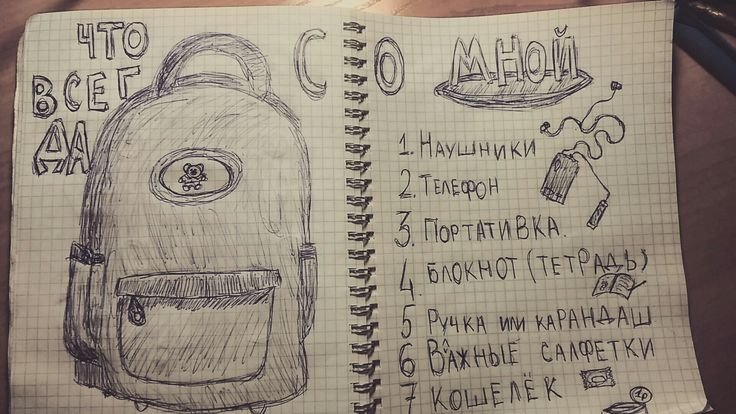 ЧТО
ВСЕГ
ДА
С О МНОЙ
1. НАУШНИКИ
2 ТЕЛЕФОН
3. ПОРТАТИВКА.
4 БЛОКНОТ (ТЕТРАДЬ)
5 РУЧКА ИЛИ КАРАНДАШ
6 ВЛАЖНЫЕ САЛФЕТКИ
7 КОШЕЛЁК
1р